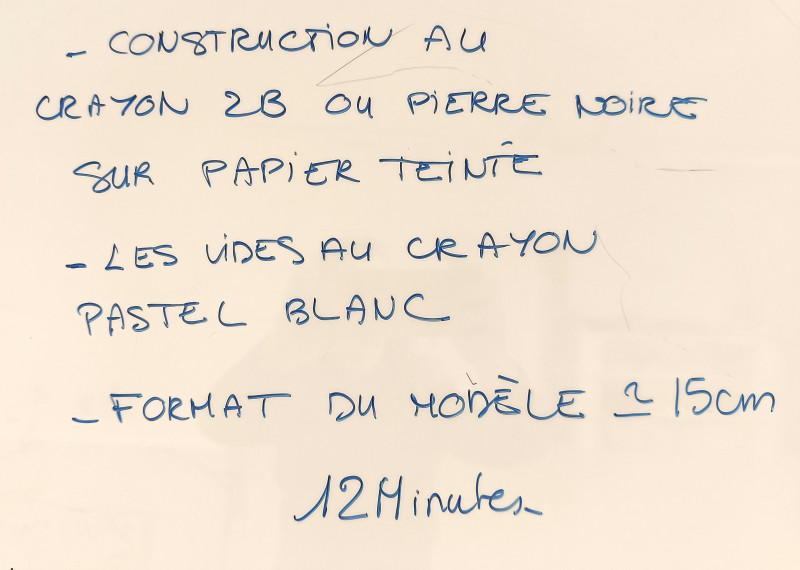 - CONSTRUCTION AU
CRAYON 2B OU PIERRE NOIRE
SUR PAPIER TEINTÉ
- LES VIDES AU CRAYON
PASTEL BLANC
- FORMAT DU MODÈLE ≃ 15cm
12 Minutes